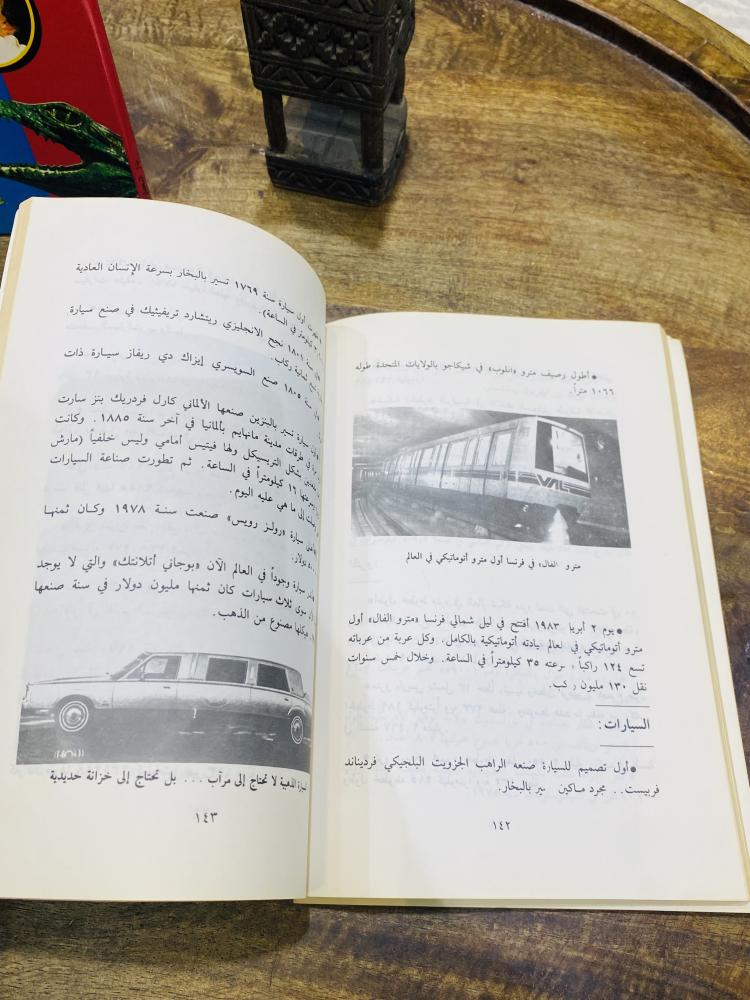 ● أطول رصيف مترو «انلوب» في شيكاجو بالولايات المتحدة طوله
١٠٦٦ متراً.
VAL
مترو الفال، في فرنسا أول مترو أتوماتيكي في العالم
● يوم ٢ أبريل ١٩٨٣ أفتتح في ليل شمالي فرنسا «مترو الفال» أول
مترو أتوماتيكي في لعالم يادته أتوماتيكية بالكامل. وكل عربة من عرباته
تسع ١٢٤ راكباً، برعته ٣٥ كيلومتراً في الساعة. وخلال خمس سنوات
نقل ١٣٠ مليون ركب.
السيارات:
● أول تصميم للسيارة صنعه الراهب الجزويت البلجيكي فرديناند
فربيست.. مجرد ماكين سير بالبخار.
١٤٢
أول سيارة سنة ١٧٦٩ تسير بالبخار بسرعة الإنسان العادية
كيلومتر في الساعة).
سنة ١٨٠١ نجح الانجليزي ريتشارد تريفيثيك في صنع سيارة
ثمانية ركاب.
سنة ١٨٠٥ صنع السويسري إيزاك دي ريفاز سيارة ذات
سيارة تسير بالبنزين صنعها الألماني كارل فردريك بنز سارت
في طرقات مدينة مانهايم بألمانيا في آخر سنة ١٨٨٥. وكانت
بشكل التريسيكل ولها فيتيس أمامي وليس خلفياً (مارش
١٦ كيلومتراً في الساعة. ثم تطورت صناعة السيارات
إلى ما هي عليه اليوم.
سيارة «رولز رويس» صنعت سنة ١٩٧٨ وكان ثمنها
دولار.
سيارة وجوداً في العالم الآن «بوجاني أتلانتك» والتي لا يوجد
سوى ثلاث سيارات كان ثمنها مليون دولار في سنة صنعها
مصنوع من الذهب.
الذهبية لا تحتاج إلى مرآب ... بل تحتاج إلى خزانة حديدية
١٤٣